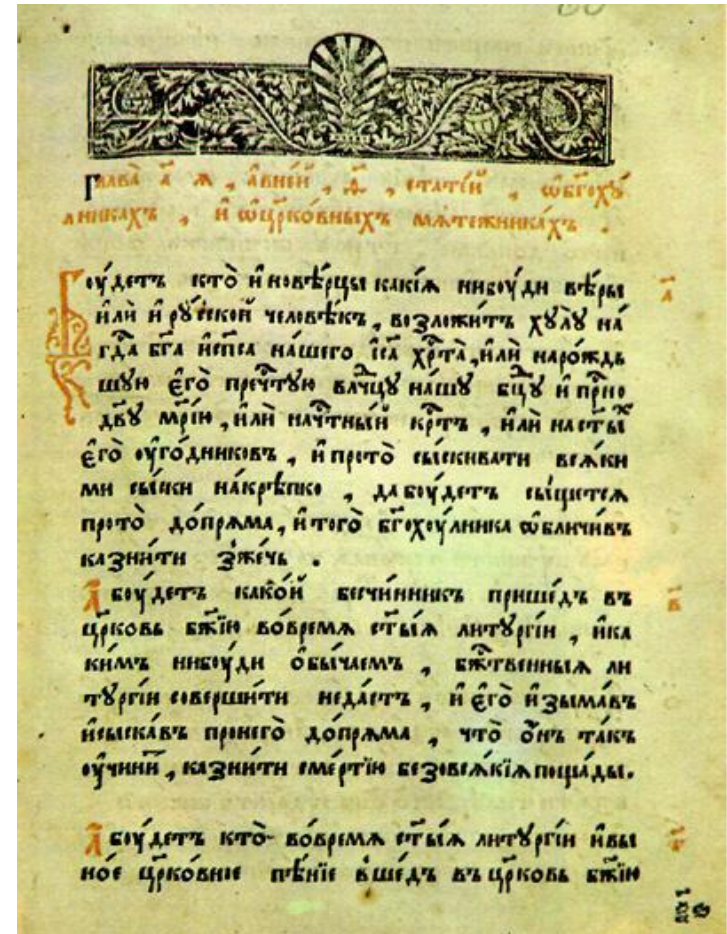 Глава̀ а҃ я , а в не́й , ѳ҃ , стате́й , ѡ бг҃оху́
лникахъ , и ѡ цр҃ко́вныхъ мѧте́жникахъ .
Боу́детъ кто̀ и новѣ́рцы какі́ѧ нибоу́ди вѣ́ры
и҆лѝ и рꙋ́сской человѣ́къ , возложи́тъ хꙋлꙋ на́
гд҃а бг҃а и сп҃са на́шего і҆с҃а хрⷭ҇та̀ , и҆лѝ наро́ждь
шую є҆го̀ пречⷭ҇тую влⷣчцу на́шу бц҃у и прⷭ҇но
дв҃у мр҃і́ю , и҆лѝ на чⷭ҇тны́й крⷭ҇тъ , и҆лѝ на ст҃ы́хъ
є҆го̀ оуго́дниковъ , и про то̀ сы́скивати всѧ́ки
ми сы́ски на́крѣпко , да боу́детъ сы́щетсѧ
про то̀ до́прѧма , и того̀ бг҃охоу́лника ѡбличи́въ
казни́ти зже́чь .
А боу́детъ како́й безчи́нникъ прише́дъ въ
цр҃ковь бж҃ію во́ времѧ ст҃ы́ѧ литꙋргі́и , и ка
ки́мъ нибоу́ди ѻбы́чаемъ , бжⷭ҇твенныѧ ли
тꙋргі́и соверши́ти не да́стъ , и є҆го̀ изыма́въ
и сыска́въ про него̀ до́прѧма , что̀ ѻ́нъ та́къ
оучини́тъ , казни́ти сме́ртію безо всѧ́кіѧ поща́ды.
А боу́детъ кто̀ во́ времѧ ст҃ы́ѧ литꙋргі́и и в ы
но́е цр҃ко́вное пѣ́ніе вше́дъ въ цр҃ковь бж҃ію